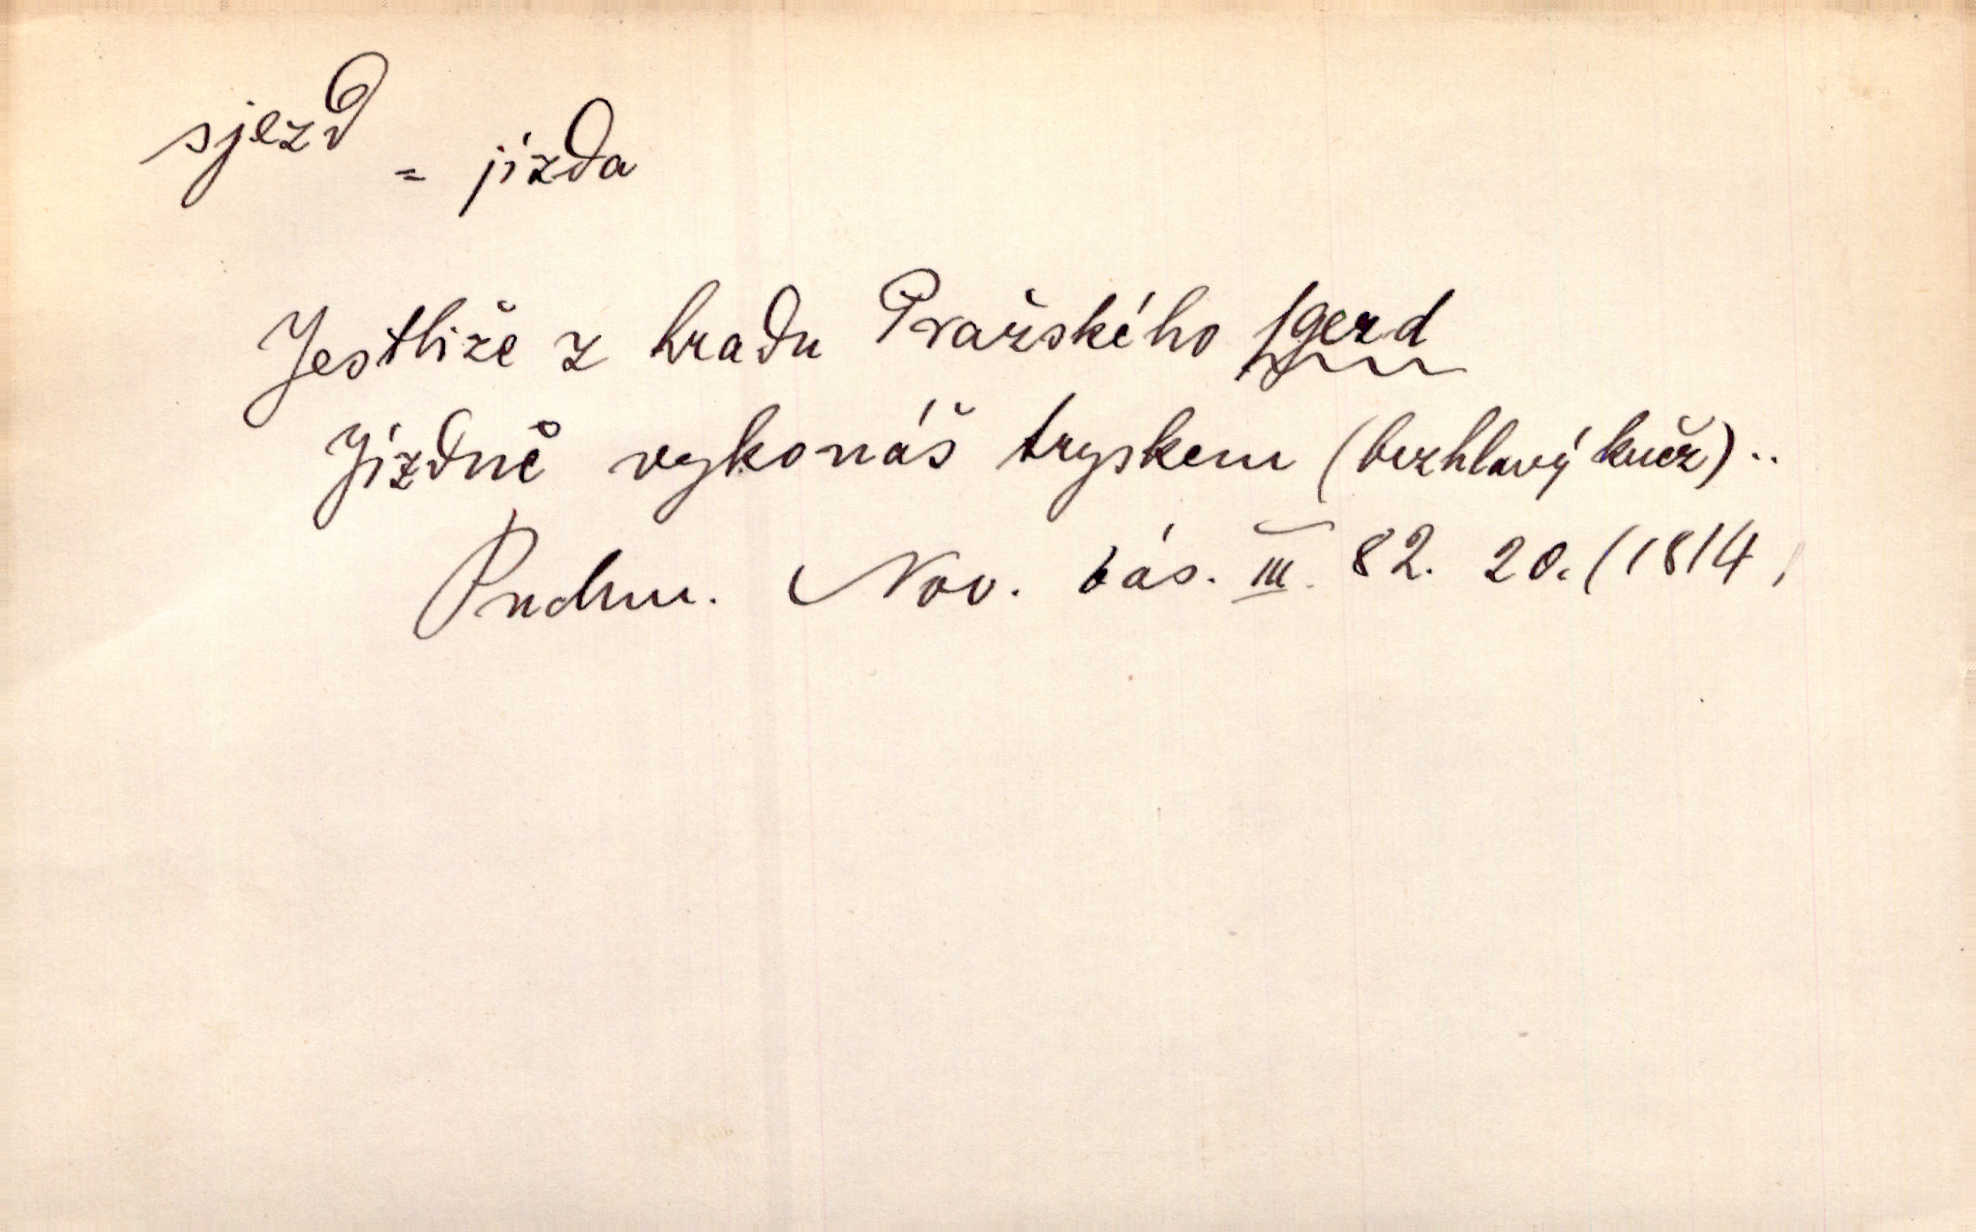 sjezd = jízda
Jestliže z hradu Pražského ſgezd
Jízdně vykonáš tryskem (bezhlavý kněz) ..
Puchm. Nov. bás. III. 82. 20. (1814)